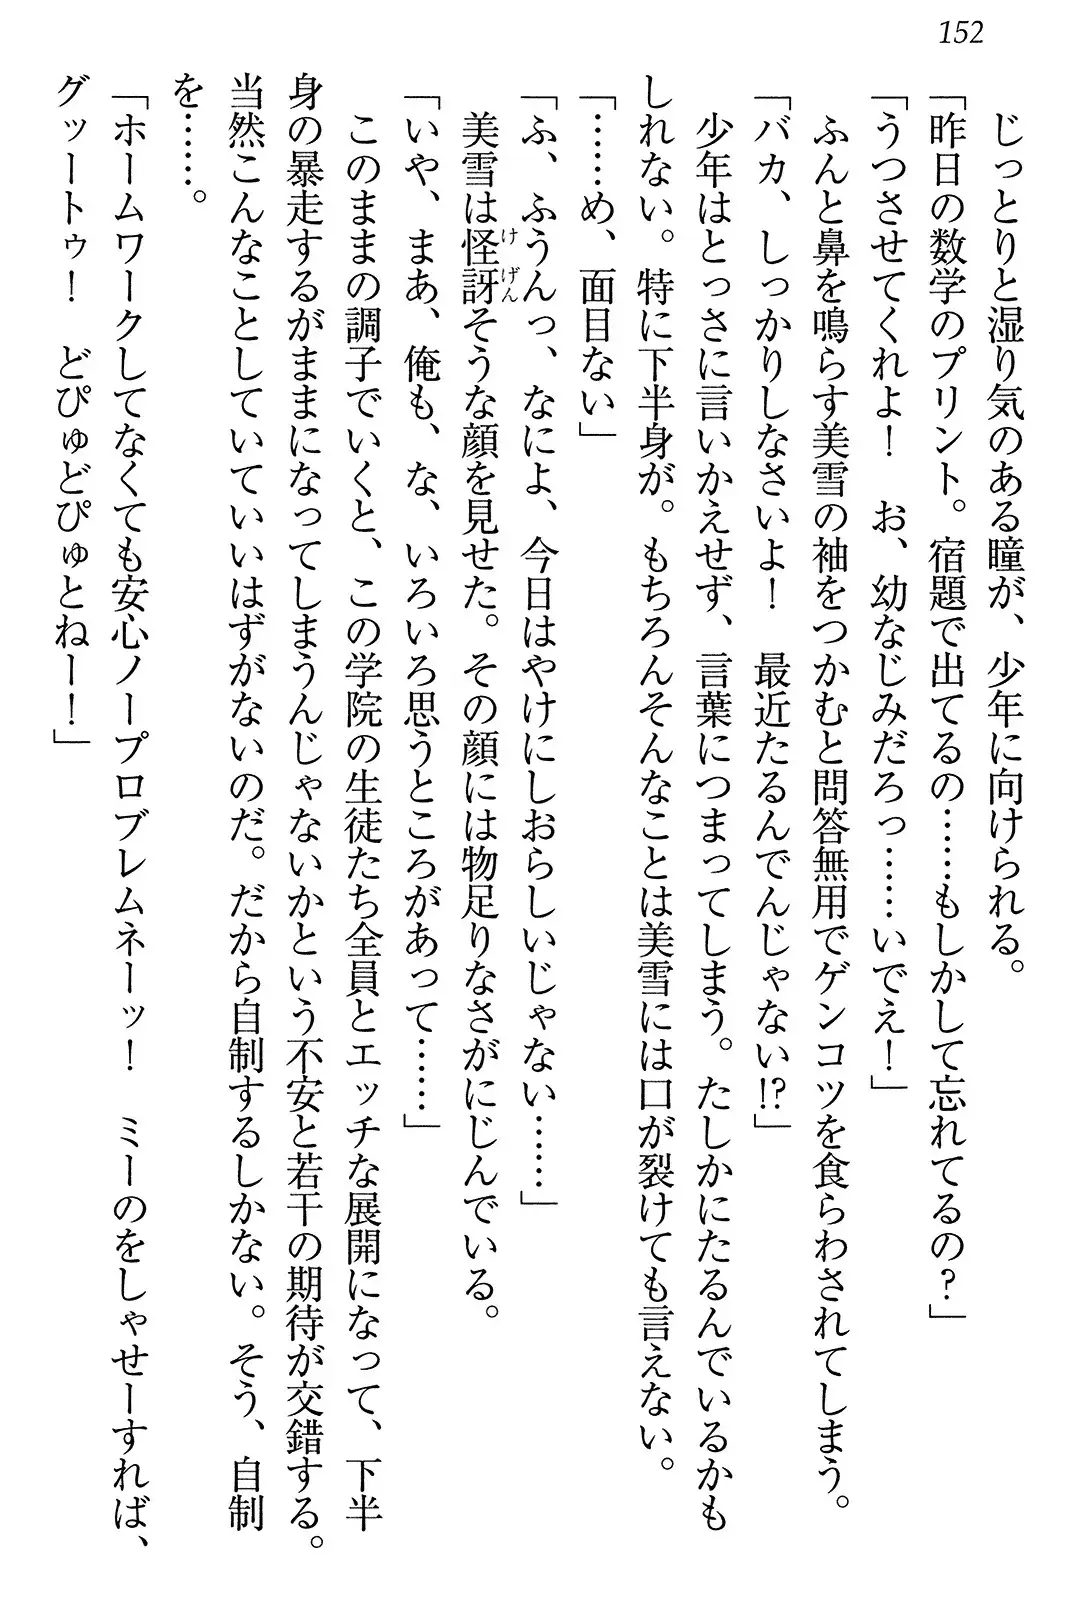 152
じっとりと湿り気のある瞳が、少年に向けられる。
「昨日の数学のプリント。宿題で出てるの……もしかして忘れてるの?」
「うつさせてくれよ! お、幼なじみだろっ……いでえ!」
ふんと鼻を鳴らす美雪の袖をつかむと問答無用でゲンコツを食らわされてしまう。
「バカ、しっかりしなさいよ! 最近たるんでんじゃない!?」
少年はとっさに言いかえせず、言葉につまってしまう。たしかにたるんでいるかも
しれない。特に下半身が。もちろんそんなことは美雪には口が裂けても言えない。
「……め、面目ない」
「ふ、ふうんっ、なによ、今日はやけにしおらしいじゃない……」
美雪は怪訝そうな顔を見せた。その顔には物足りなさがにじんでいる。
けげん
「いや、まあ、俺も、な、いろいろ思うところがあって……」
このままの調子でいくと、この学院の生徒たち全員とエッチな展開になって、下半
身の暴走するがままになってしまうんじゃないかという不安と若干の期待が交錯する。
当然こんなことしていていいはずがないのだ。だから自制するしかない。そう、自制
を……。
「ホームワークしてなくても安心ノープロブレムネーッ! ミーのをしゃせーすれば、
グットゥ! どぴゅどぴゅとねー!」